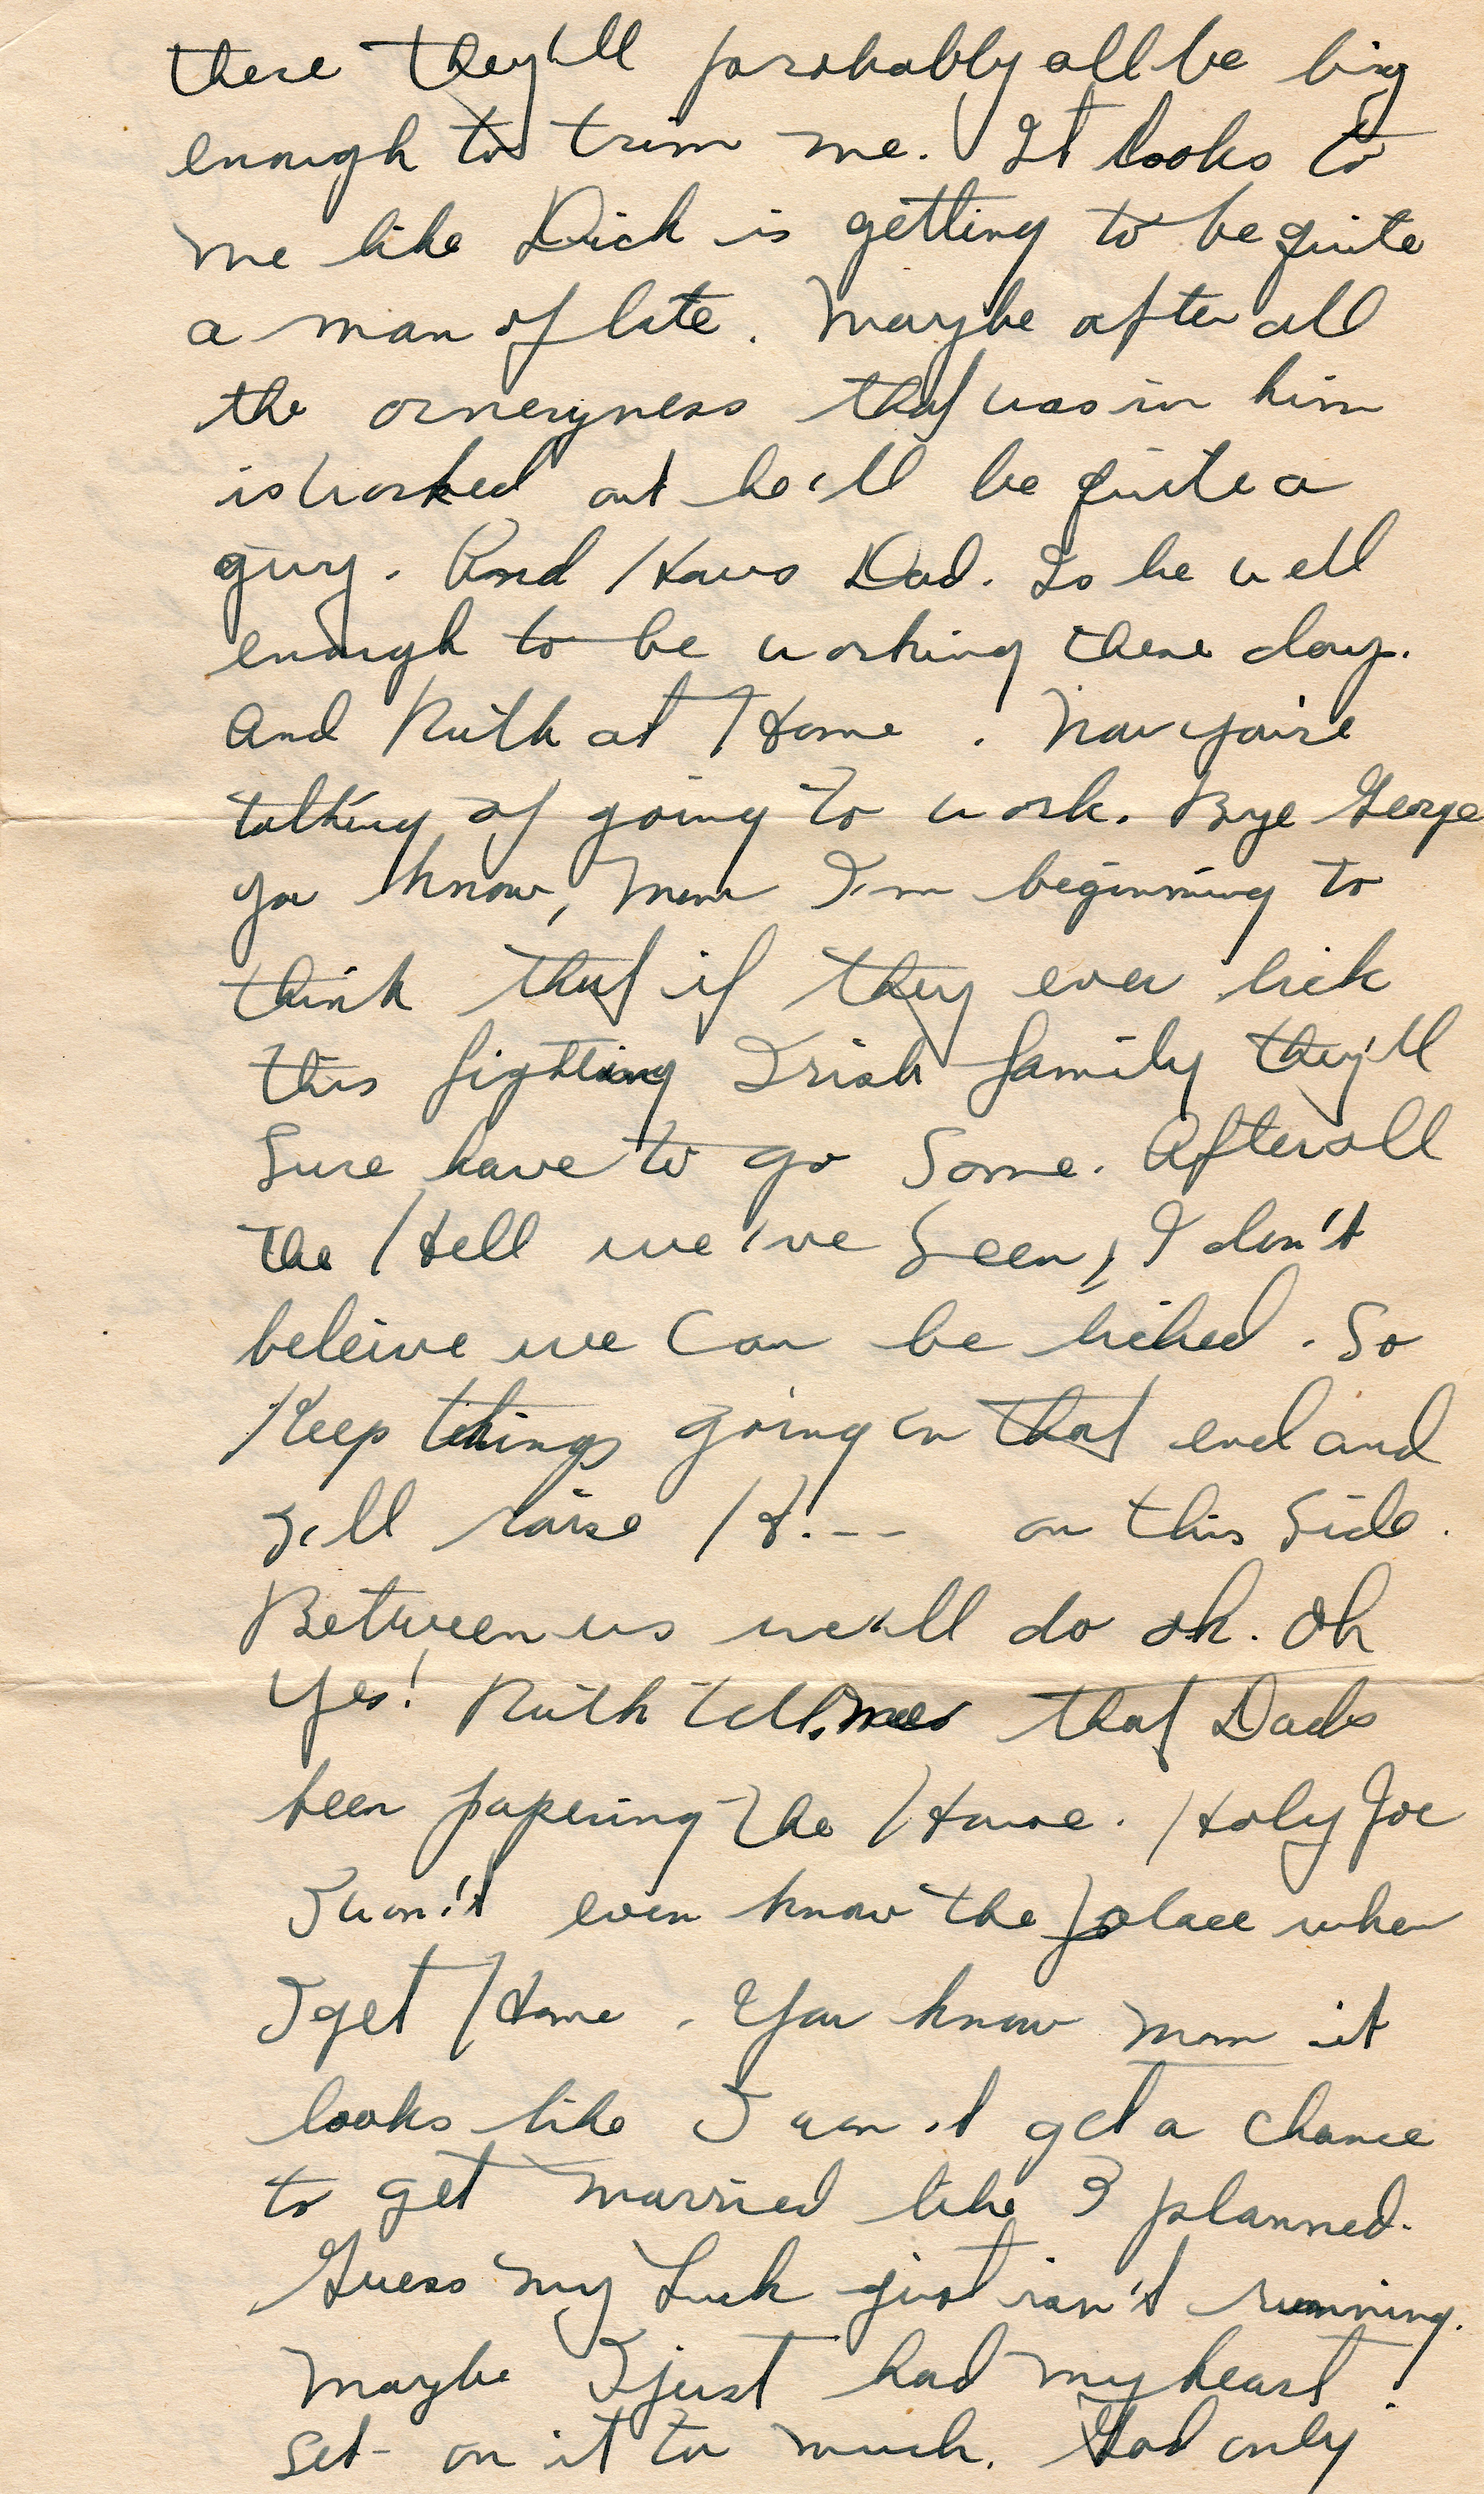 there they'll probably all be big
enough to trim me. It looks to
me like Dick is getting to be quite
a man of late. Maybe after all
the orneryness that was in him
is worked out he'll be quite a
guy. And Hows Dad. Is he well
enough to be working these days.
And Ruth at Home. Now you're
talking of going to work. Bye George
you know, Mom I'm beginning to
think that if they ever lick
this fighting Irish family they'll
Sure have to go Some. After all
the Hell we've Seen, I don't
beleive we Can be licked. So
Keep things going on that end and
I'll raise H.-- on this Side.
Between us we'll do ok. Oh
Yes! Ruth tells me that Dads
been papering the House. Holy Joe
I won't even know the place when
I get Home. You know Mom it
looks like I won't get a chance
to get married like I planned.
Guess my Luck just isn't running.
Maybe I just had my heart
set on it to much. God only